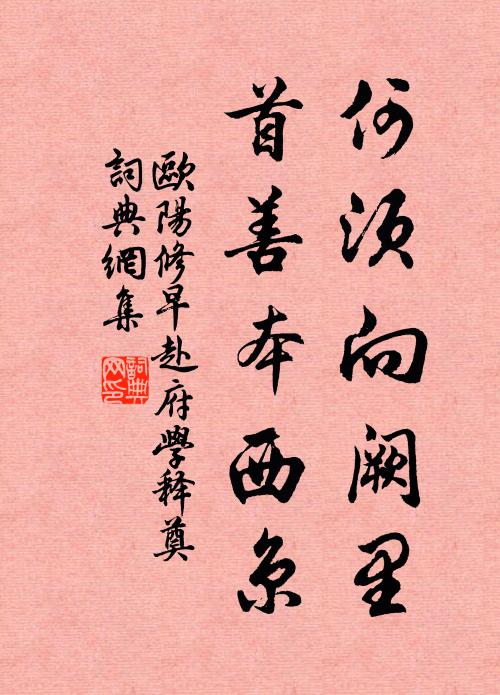 何須向阙里
首善本西京
歐陽修早赴府學释奠
詞典網集
詞典
网印